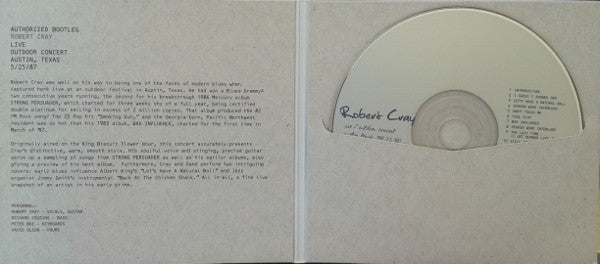 AUTHORIZED BOOTLEG
ROBERT CRAY
LIVE
OUTDOOR CONCERT
AUSTIN, TEXAS
5/25/87
Robert Cray was well on his way to being one of the faces of modern blues when
captured here live at an outdoor festival in Austin, Texas. He had won a Blues Grammy
two consecutive years running, the second for his breakthrough 1986 Mercury album
STRONG PERSUADER, which charted for three weeks shy of a full year, being certified
double platinum for selling in excess of 2 million copies. That album produced the #2
PR Rock song/ Top 25 Pop hit "Smoking Gun," and the Georgia-born, Pacific Northwest
resident was so hot that his 1983 album, BAD INFLUENCE, charted for the first time in
March of '87.
Originally aired on the King Biscuit Flower Hour, this concert accurately presents
Cray's distinctive, warm, smooth style. His soulful voice and stinging, precise guitar
serve up a sampling of songs from STRONG PERSUADER as well as his earlier albums, also
giving a preview of his next album. Furthermore, Cray and Band perform two intriguing
covers: early blues influence Albert King's "Let's Have A Natural Ball" and jazz
organist Jimmy Smith's instrumental "Back At The Chicken Shack." All in all, a fine live
snapshot of an artist in his early prime.
PERSONNEL:
ROBERT CRAY - VOCALS, GUITAR
RICHARD COUSINS - BASS
PETER BOE - KEYBOARDS
DAVID OLSON - DRUMS
Robert Cray
Live / outdoor concert
1 INTRODUCTION
2 I GUESS I SHOWED HER
3 LET'S HAVE A NATURAL BALL
4 SPOKEN WORD INTERLUDE
5 DON'T TOUCH ME
6 FOUL PLAY
7 BAD INFLUENCE
8 SPOKEN WORD INTERLUDE
9 THE LAST TIME